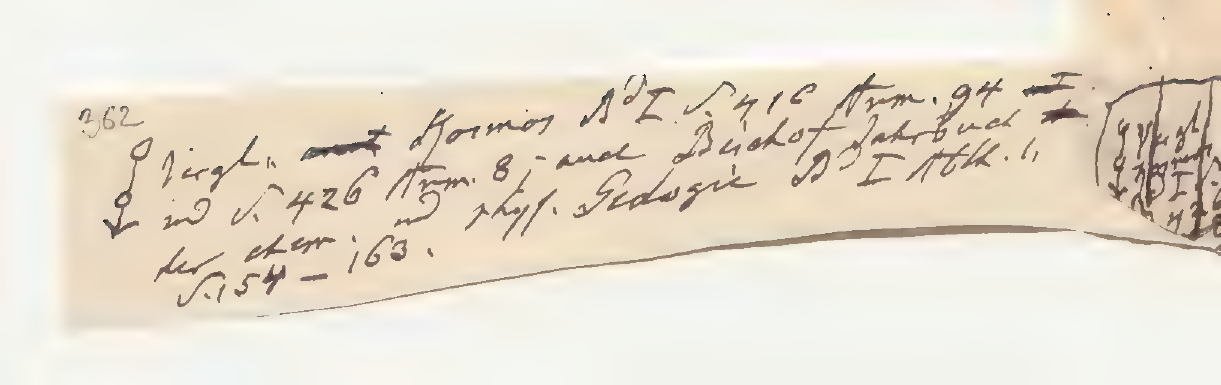 362
Vergl. Kosmos Bd I S. 416 Anm. 94
und S. 426 Anm. 8; auch Bischof Jahrbuch
der chem. und phys. Geologie Bd I Abth. 1,
S. 154 – 163.